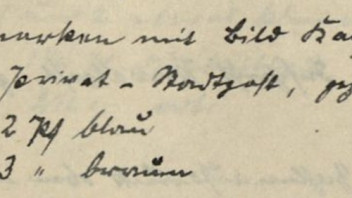 marken mit Bild Ka
Privat - Stadtpost, ge
2 Pf blau
3 " braun